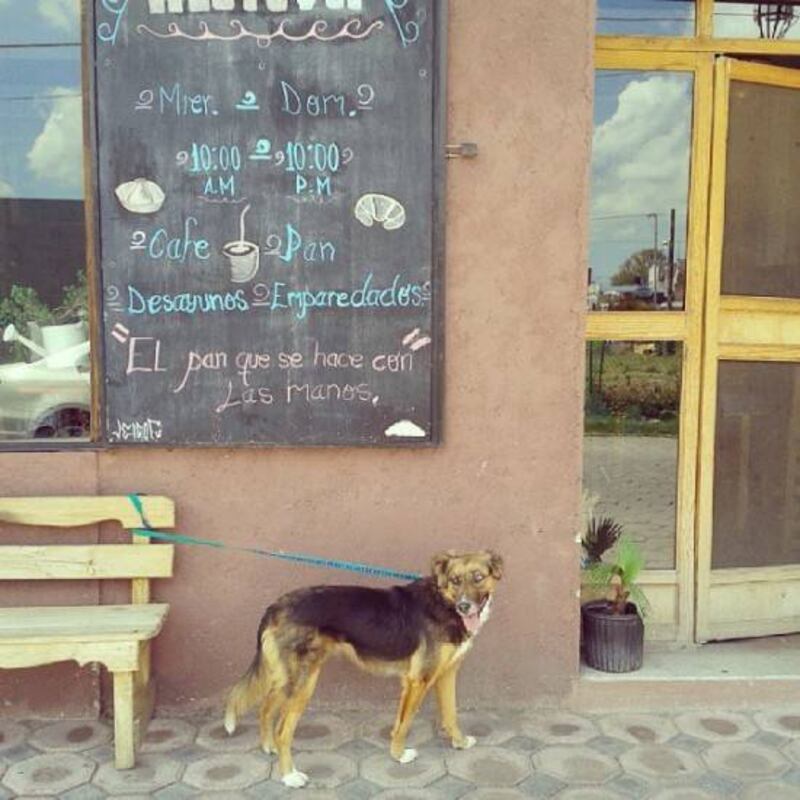 Mier. a Dom.
10:00 a 10:00
A.M P.M
Cafe Pan
Desayunos Emparedados
"EL pan que se hace con
Las manos.